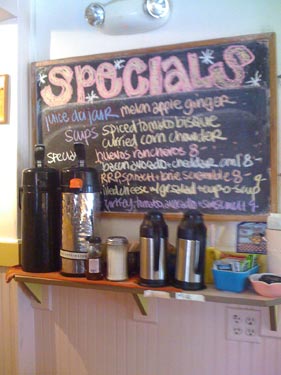 SPECIALS
juice du jour melon apple ginger
soups spiced tomato bisque
curried corn chowder
specials huevos rancheros 8
bacon·avocado·cheddar oml 8-
R.R.P, spinach + brie scramble 8
grilled cheese w/ salad + cup o soup
turkey, tomato, avocado + swiss melt